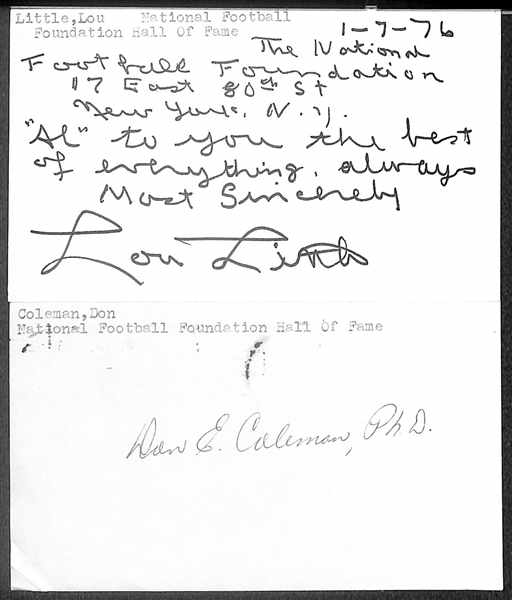 Little,Lou National Football
Foundation Hall Of Fame
1-7-76
The National
Football Foundation
17 East 80th St
New York, N.Y.
"Al" to you the best
of everything, always
Most Sincerely
Lou Little
Coleman,Don
National Football Foundation Hall Of Fame
Don E. Coleman, Ph.D.